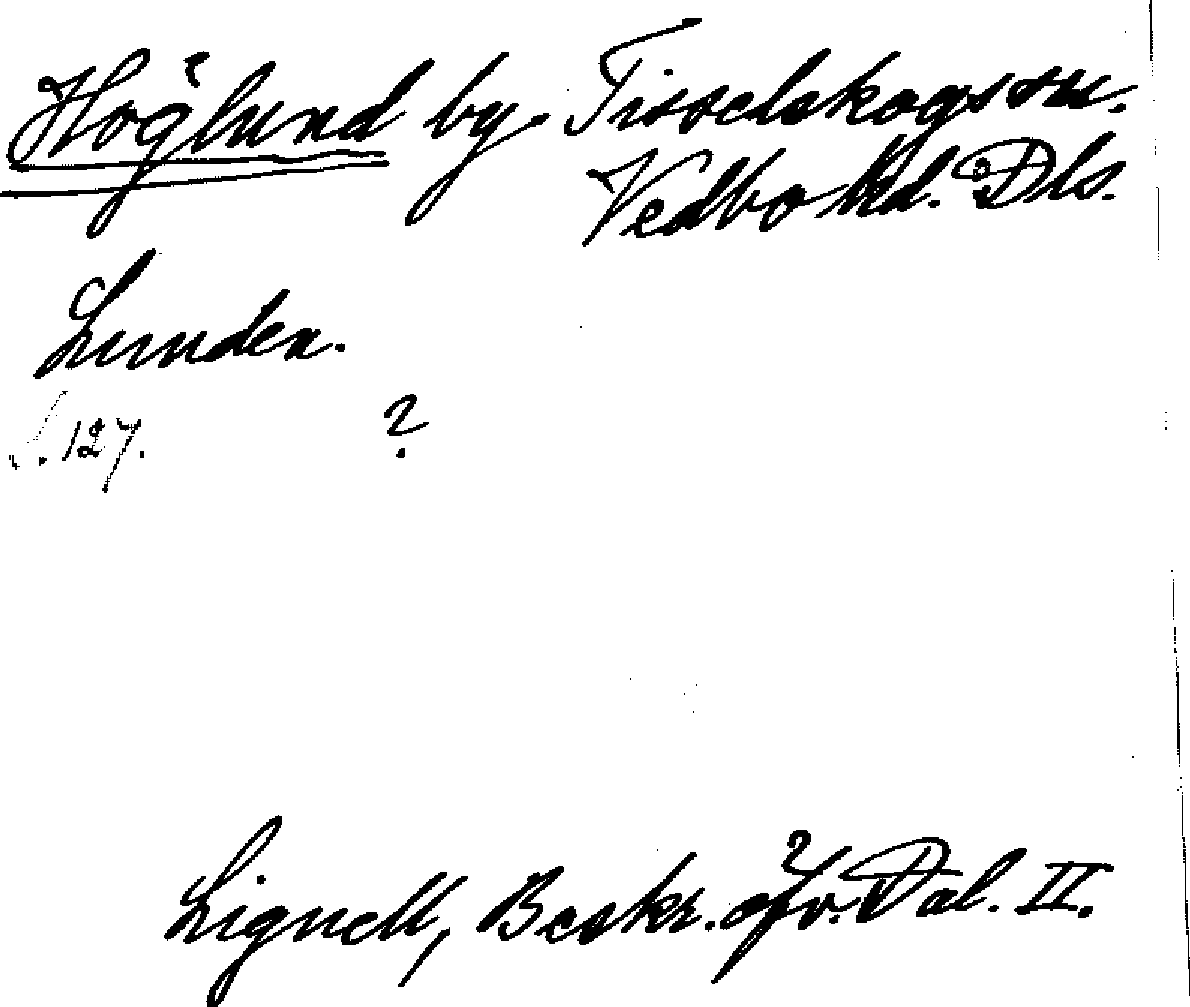 Höglund by. Tisselskogs sn.
Vedbo hd. Dls.
Lunden.
S. 127. ?
Lignell, Beskr. öfv. Dal. II.